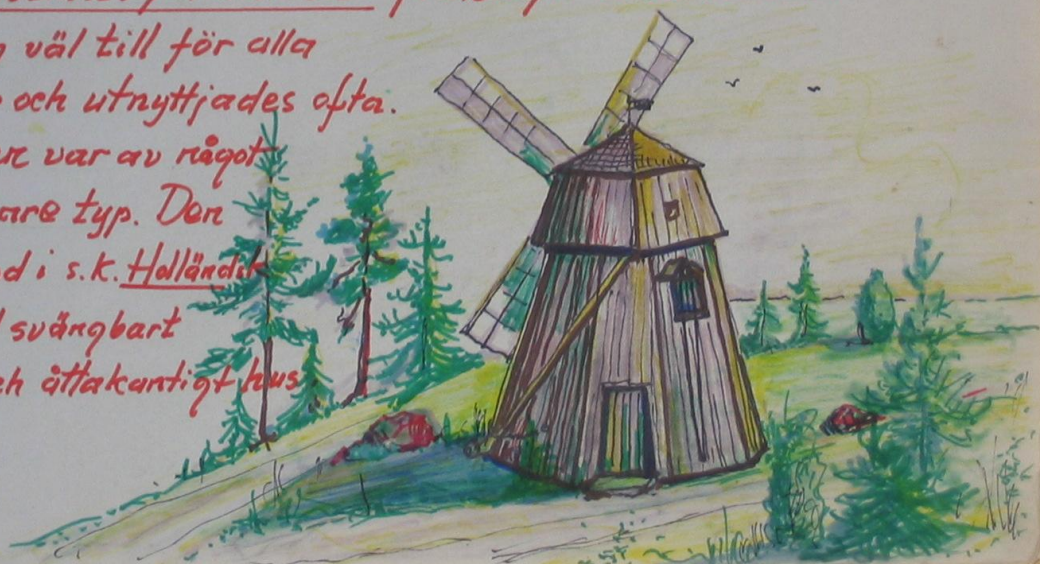 väl till för alla
och utnyttjades ofta.
var av något
typ. Den
i s.k. Holländsk
svängbart
åttakantigt hus